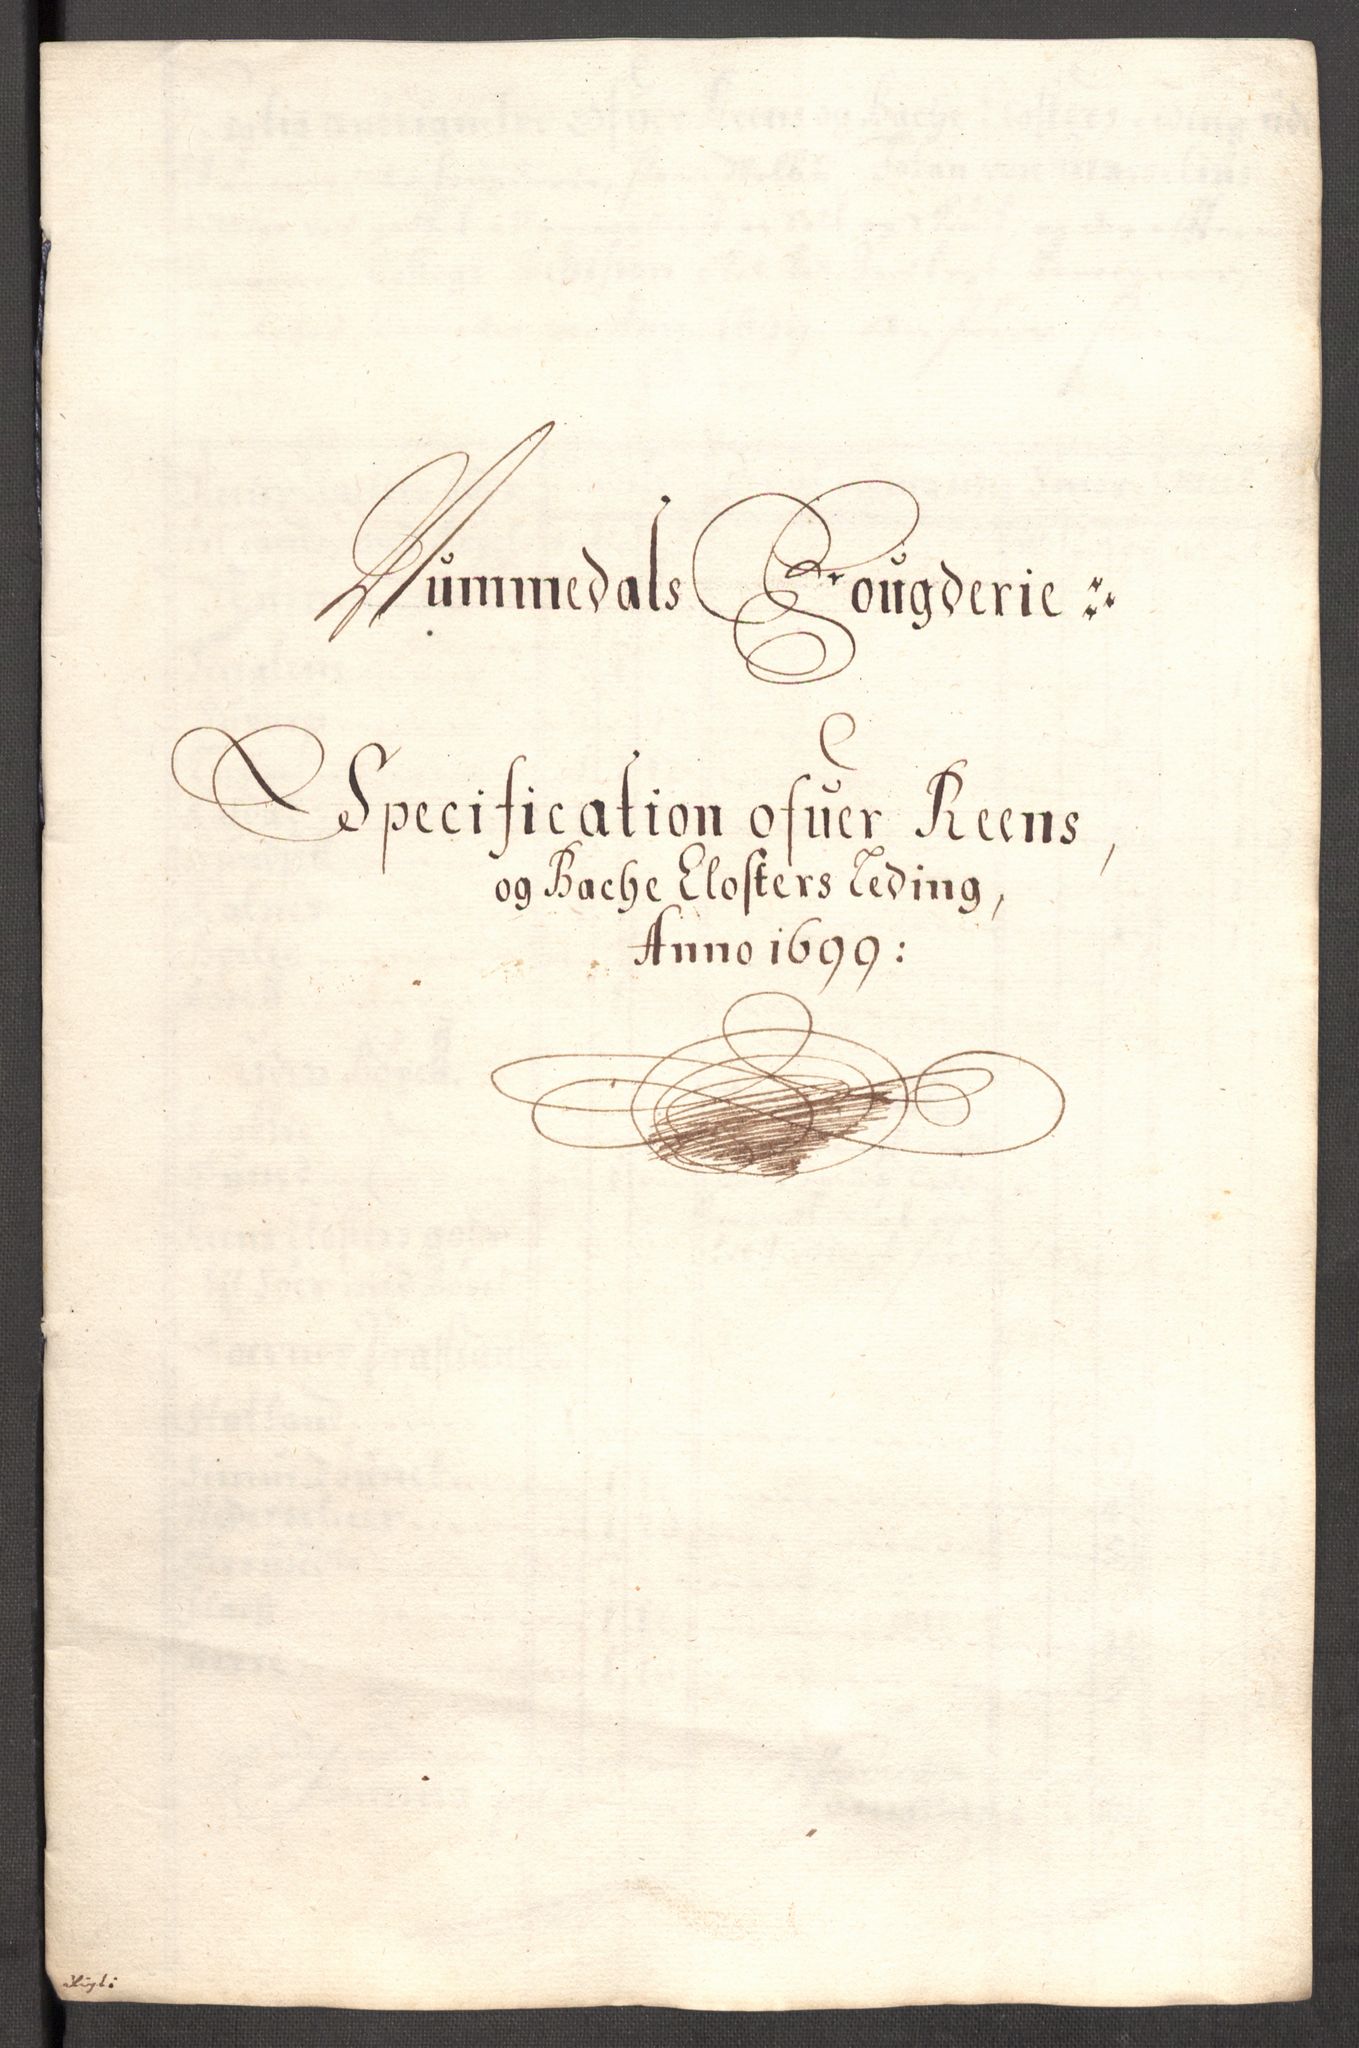 Nummedals Fougderie
Specification ofuer Reens,
og Bache Closters Teding,
Anno 1699: